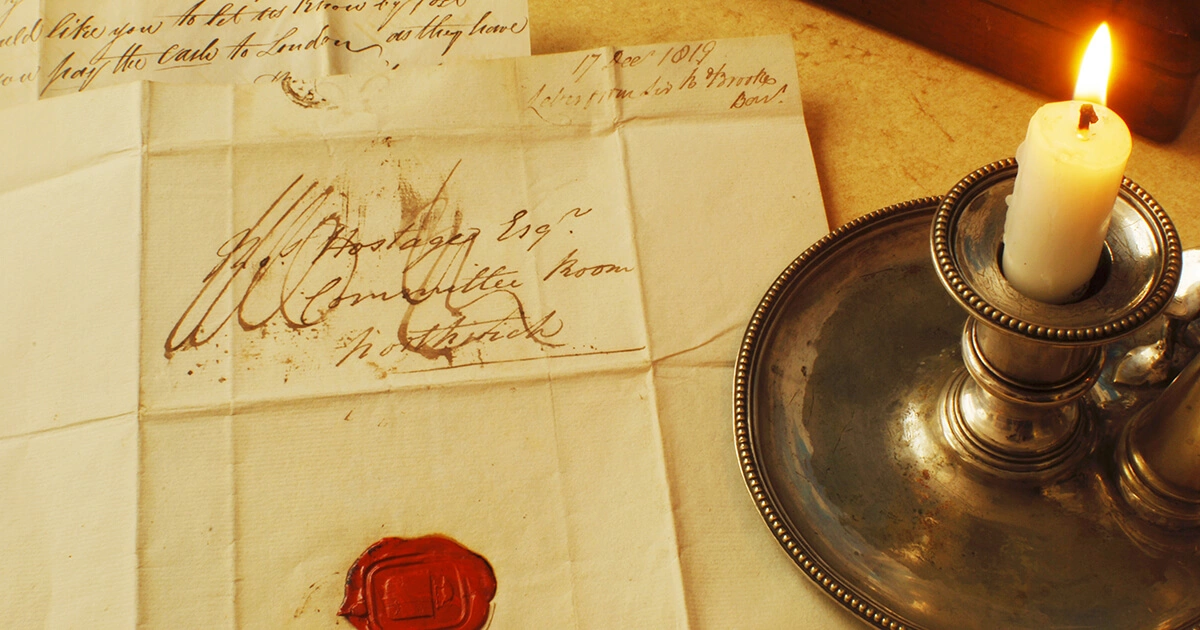 like you to let us know by post
pay the cash to London as they have
17 Dec 1819
Letter from Sir R Brooke
Bart
Hostage Esqr.
Committee Room
Northwich